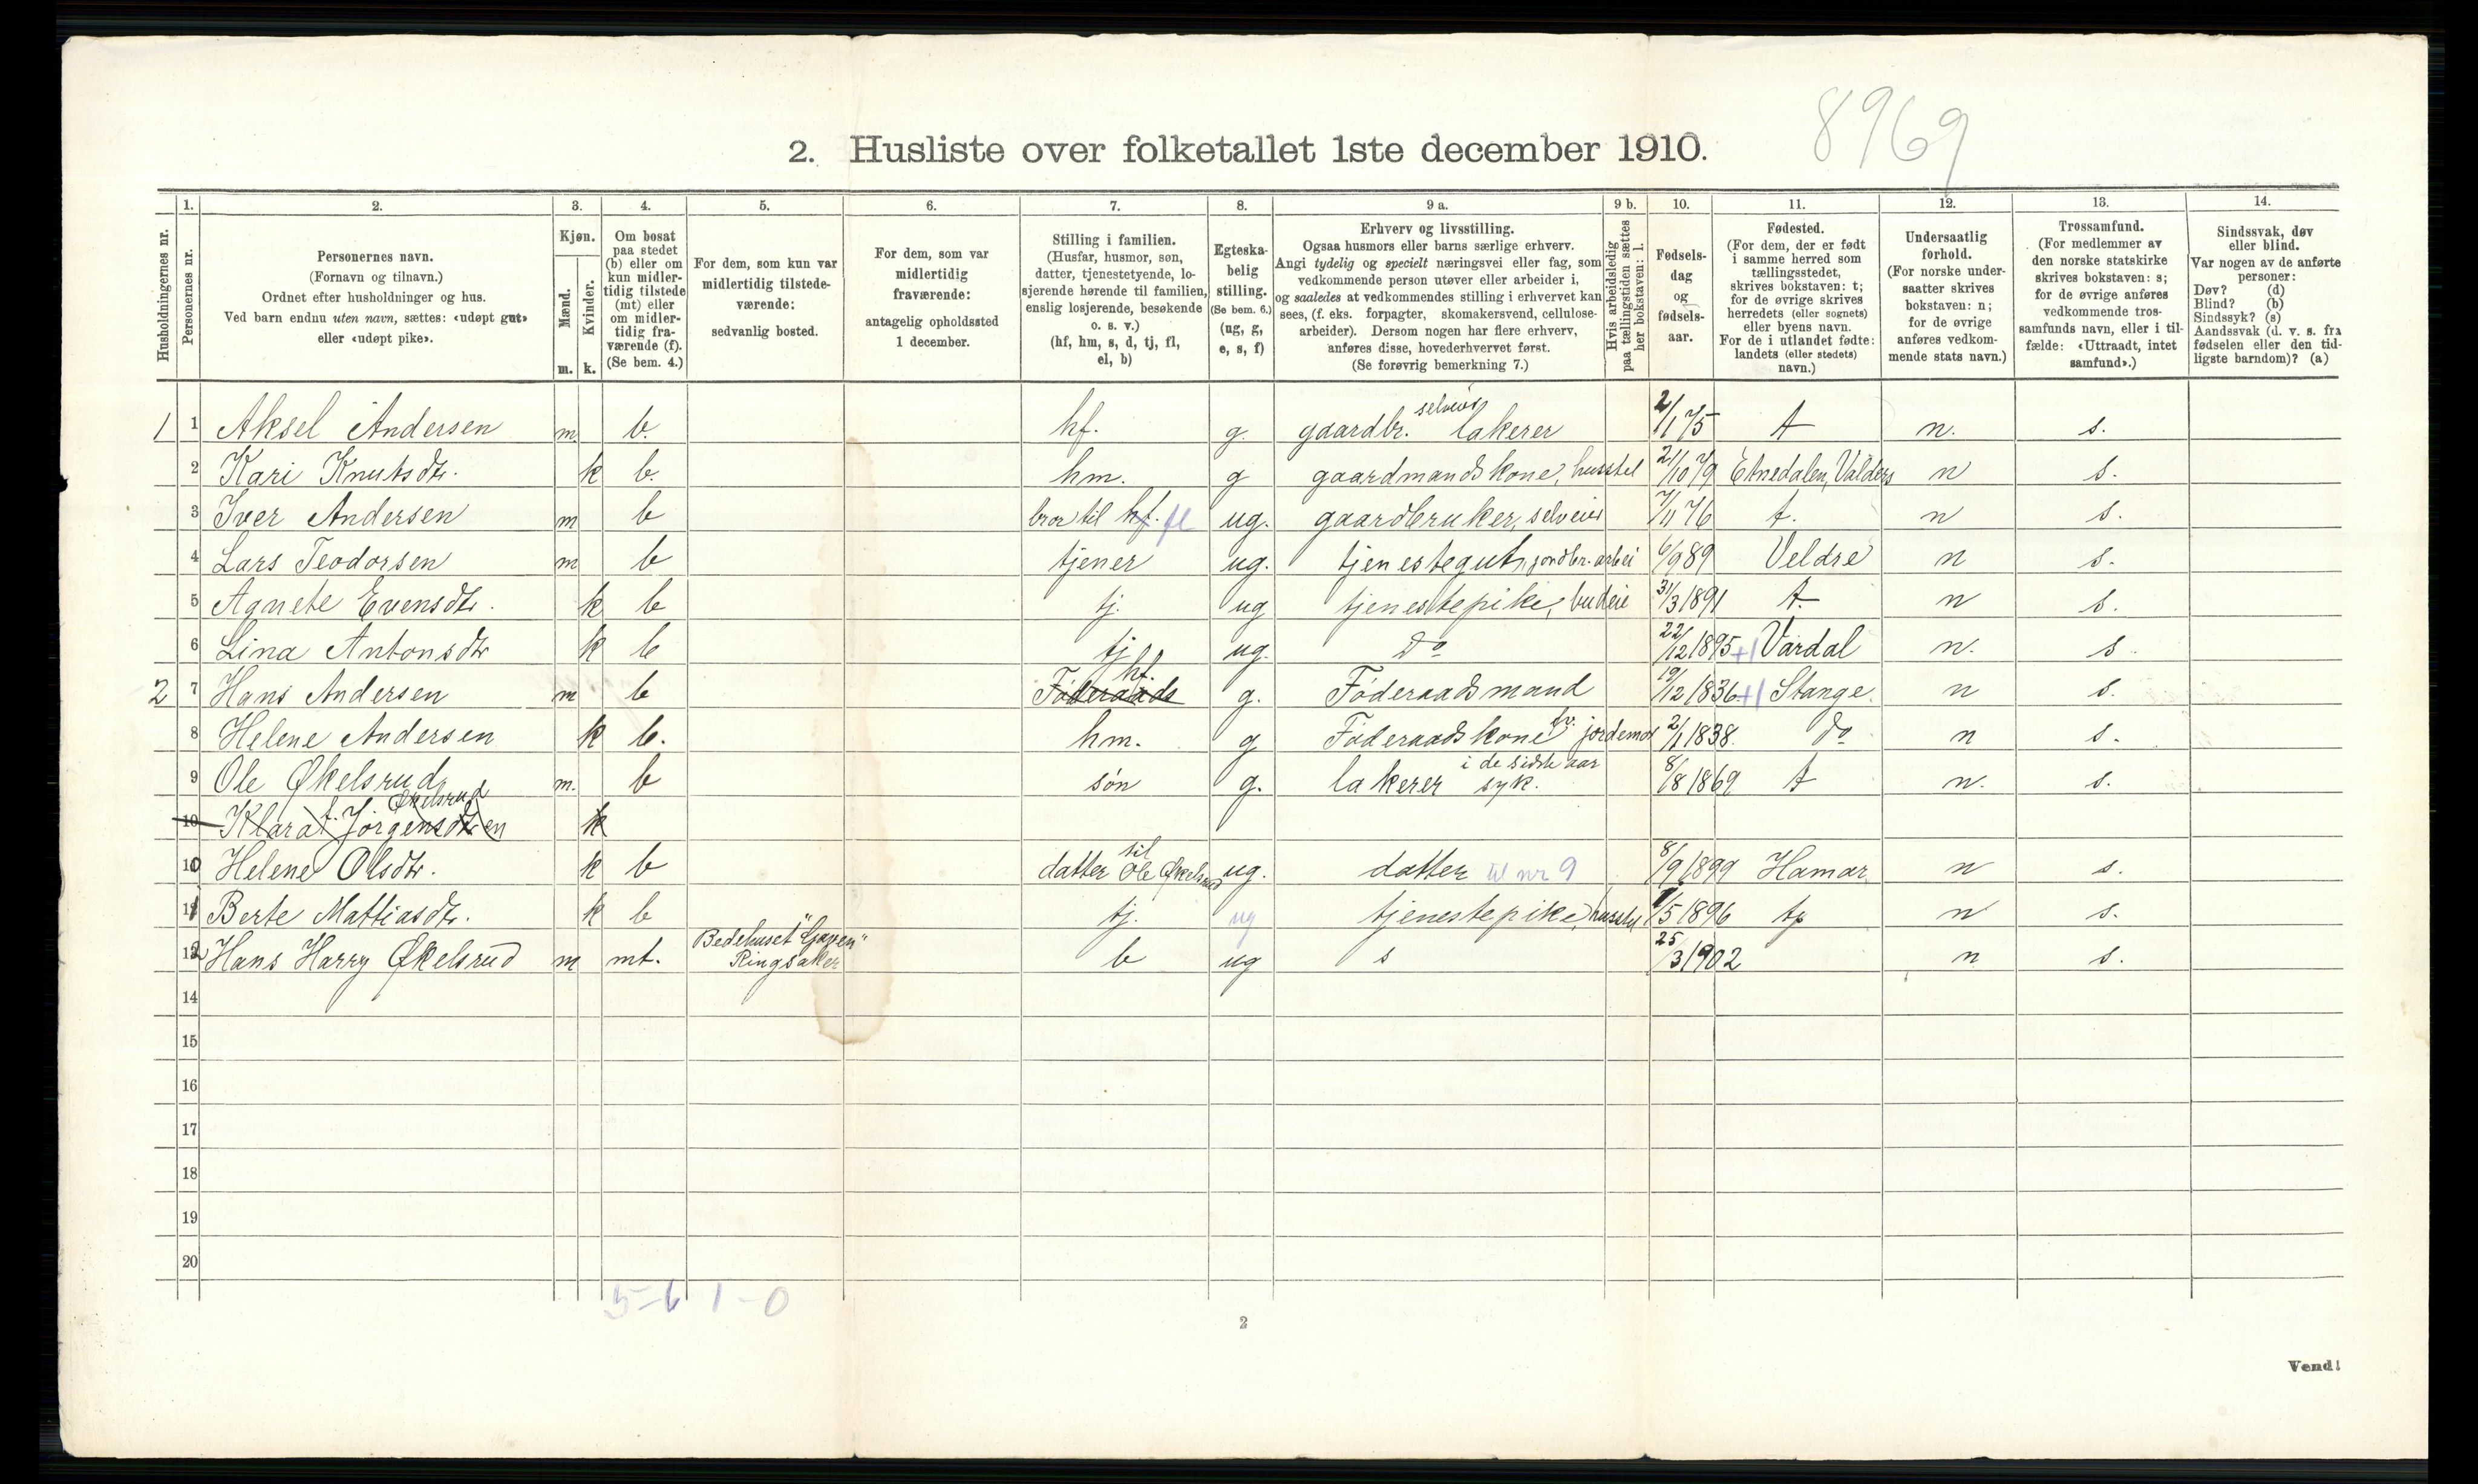 8969
2. Husliste over folketallet 1ste december 1910.
Husholdningernes nr.
1.
Personernes nr.
2.
Personernes navn.
(Fornavn og tilnavn.)
Ordnet efter husholdninger og hus.
Ved barn endnu uten navn, sættes: «udøpt gut»
eller «udøpt pike».
3.
Kjøn.
Mænd.
m.
Kvinder.
k.
4.
Om bosat
paa stedet
(b) eller om
kun midler-
tidig tilstede
(mt) eller
om midler-
tidig fra-
værende (f).
(Se bem. 4.)
5.
For dem, som kun var
midlertidig tilstede-
værende:
sedvanlig bosted.
6.
For dem, som var
midlertidig
fraværende:
antagelig opholdssted
1 december.
7.
Stilling i familien.
(Husfar, husmor, søn,
datter, tjenestetyende, lo-
sjerende hørende til familien,
enslig losjerende, besøkende
o. s. v.)
(hf, hm, s, d, tj, fl,
el, b)
8.
Egteska-
belig
stilling.
(Se bem. 6.)
(ug, g,
e, s, f)
9 a.
Erhverv og livsstilling.
Ogsaa husmors eller barns særlige erhverv.
Angi tydelig og specielt næringsvei eller fag, som
vedkommende person utøver eller arbeider i,
og saaledes at vedkommendes stilling i erhvervet kan
sees, (f. eks. forpagter, skomakersvend, cellulose-
arbeider). Dersom nogen har flere erhverv,
anføres disse, hovederhvervet først.
(Se forøvrig bemerkning 7.)
9 b.
Hvis arbeidsledig
paa tællingstiden sættes
her bokstaven: l.
10.
Fødsels-
dag
og
fødsels-
aar.
11.
Fødested.
(For dem, der er født
i samme herred som
tællingsstedet,
skrives bokstaven: t;
for de øvrige skrives
herredets (eller sognets)
eller byens navn.
For de i utlandet fødte:
landets (eller stedets)
navn.)
12.
Undersaatlig
forhold.
(For norske under-
saatter skrives
bokstaven: n;
for de øvrige
anføres vedkom-
mende stats navn.)
13.
Trossamfund.
(For medlemmer av
den norske statskirke
skrives bokstaven: s;
for de øvrige anføres
vedkommende tros-
samfunds navn, eller i til-
fælde: «Uttraadt, intet
samfund».)
14.
Sindssvak, døv
eller blind.
Var nogen av de anførte
personer:
Døv? (d)
Blind? (b)
Sindssyk? (s)
Aandssvak (d. v. s. fra
fødselen eller den tid-
ligste barndom)? (a)
1 1 Aksel Andersen m. b. hf. g. gaardbr. selveier lakerer 2/1 75 t n. s.
2 Kari Knutsdtr. k b. hm. g gaardmandskone, husstel 21/10 79 Etnedalen, Valders n s.
3 Iver Andersen m b bror til hf. fl ug. gaardbruker, selveier 7/11 76 t. n s.
4 Lars Teodorsen m b tjener ug. tjenestegut, jordbr. arbei 6/9 89 Veldre n s.
5 Agnete Evensdtr. k b tj. ug tjenestepike, budeie 31/3 1891 t. n s.
6 Lina Antonsdtr k b tj ug. do 22/12 1895 +1 Vardal n. s.
2 7 Hans Andersen m b Føderaads hf. g. Føderaadsmand 19/12 1836 +1 Stange n s.
8 Helene Andersen k b. hm. g Føderaadskone fv. jordemor 2/1 1838 do n s.
9 Ole Økelsrud m. b søn g. lakerer i de sidste aar syk. 8/8 1869 t n. s.
10 Klara f. Jørgensdtren Økelsrud k
10 Helene Olsdtr. k b datter til Ole Økelsrud ug. datter til nr 9 8/9 1899 Hamar n s.
11 Berte Mattiasdtr. k b tj. ug tjenestepike, husstel 1/5 1896 t n s.
12 Hans Harry Økelsrud m mt. Bedehuset "Gapen" Ringsaker b ug s 25/3 1902 n s.
14
15
16
17
18
19
20
5-6 1-0
2
Vend!